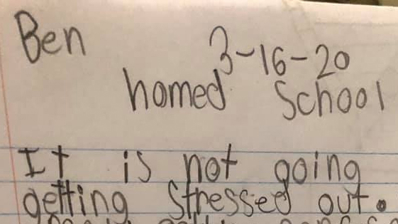 Ben
3-16-20
homed School
It is not going
getting stressed out.